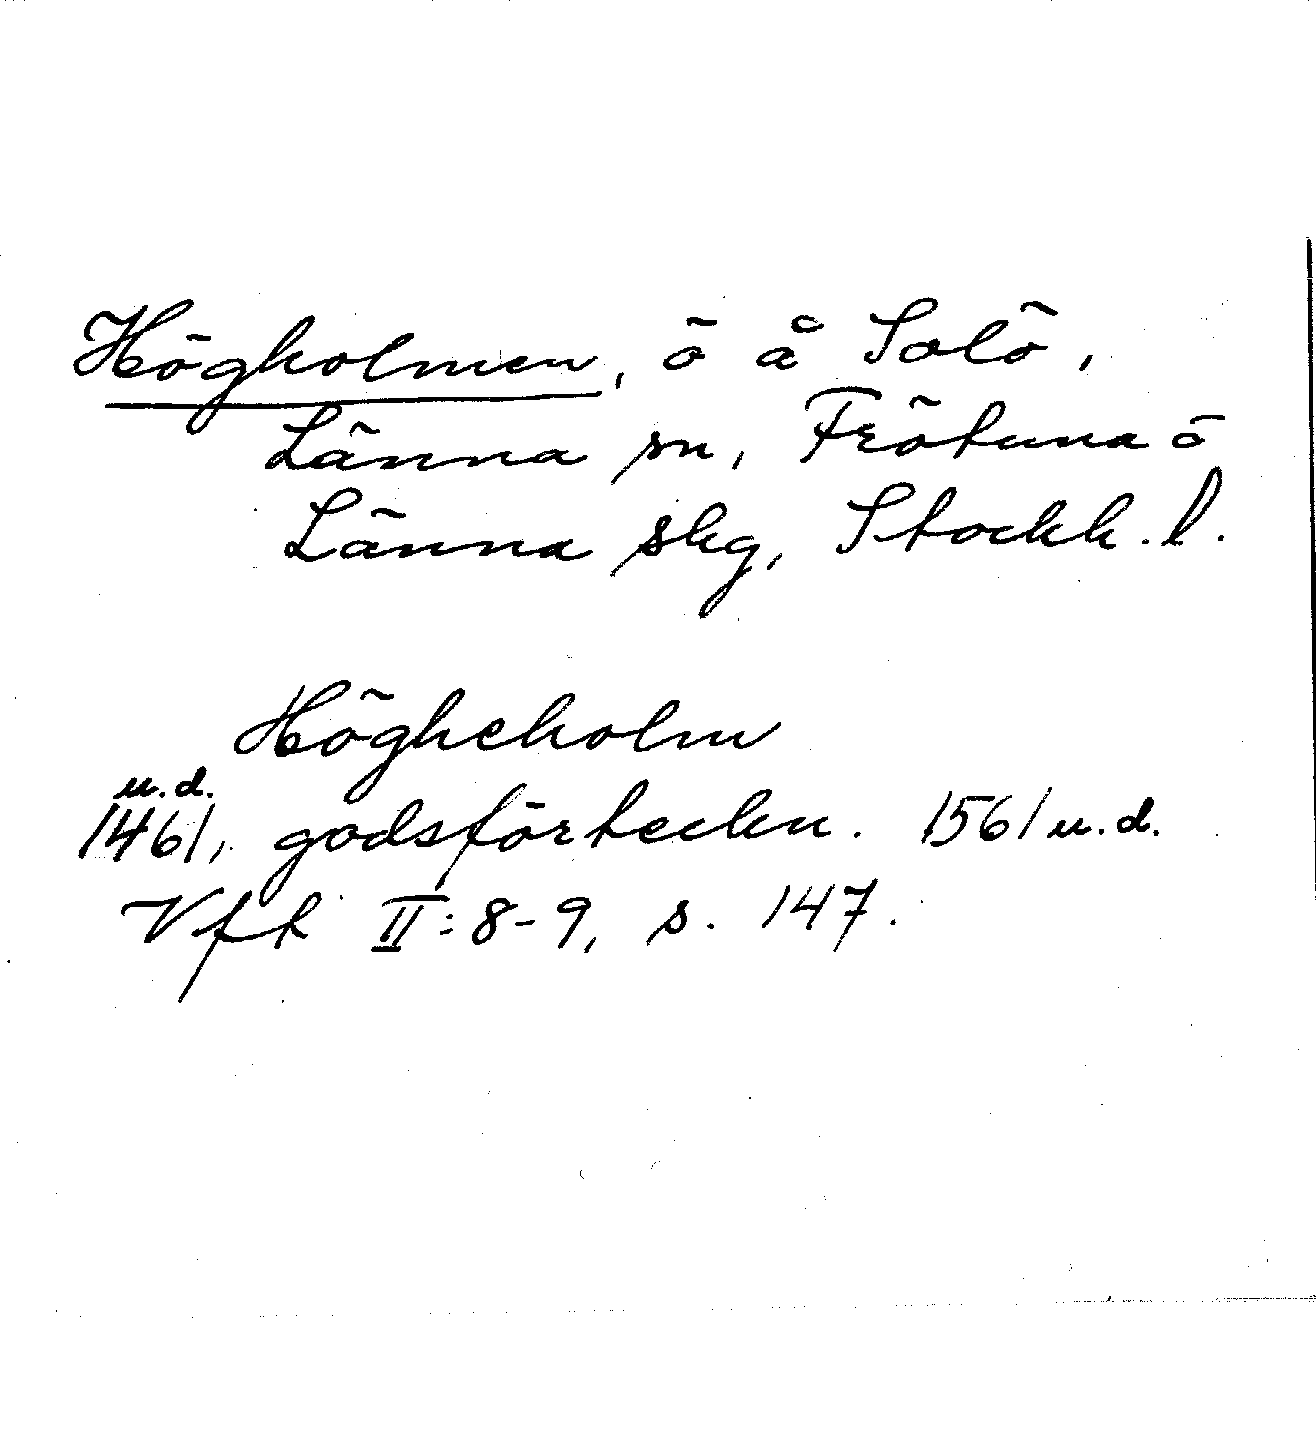 Högholmen, ö å Solö,
Länna sn, Frötuna o
Länna skg, Stockh. l.
Högheholm
u.d.
1461, godsförteckn. 1561 u.d.
Vft II:8-9, s. 147.